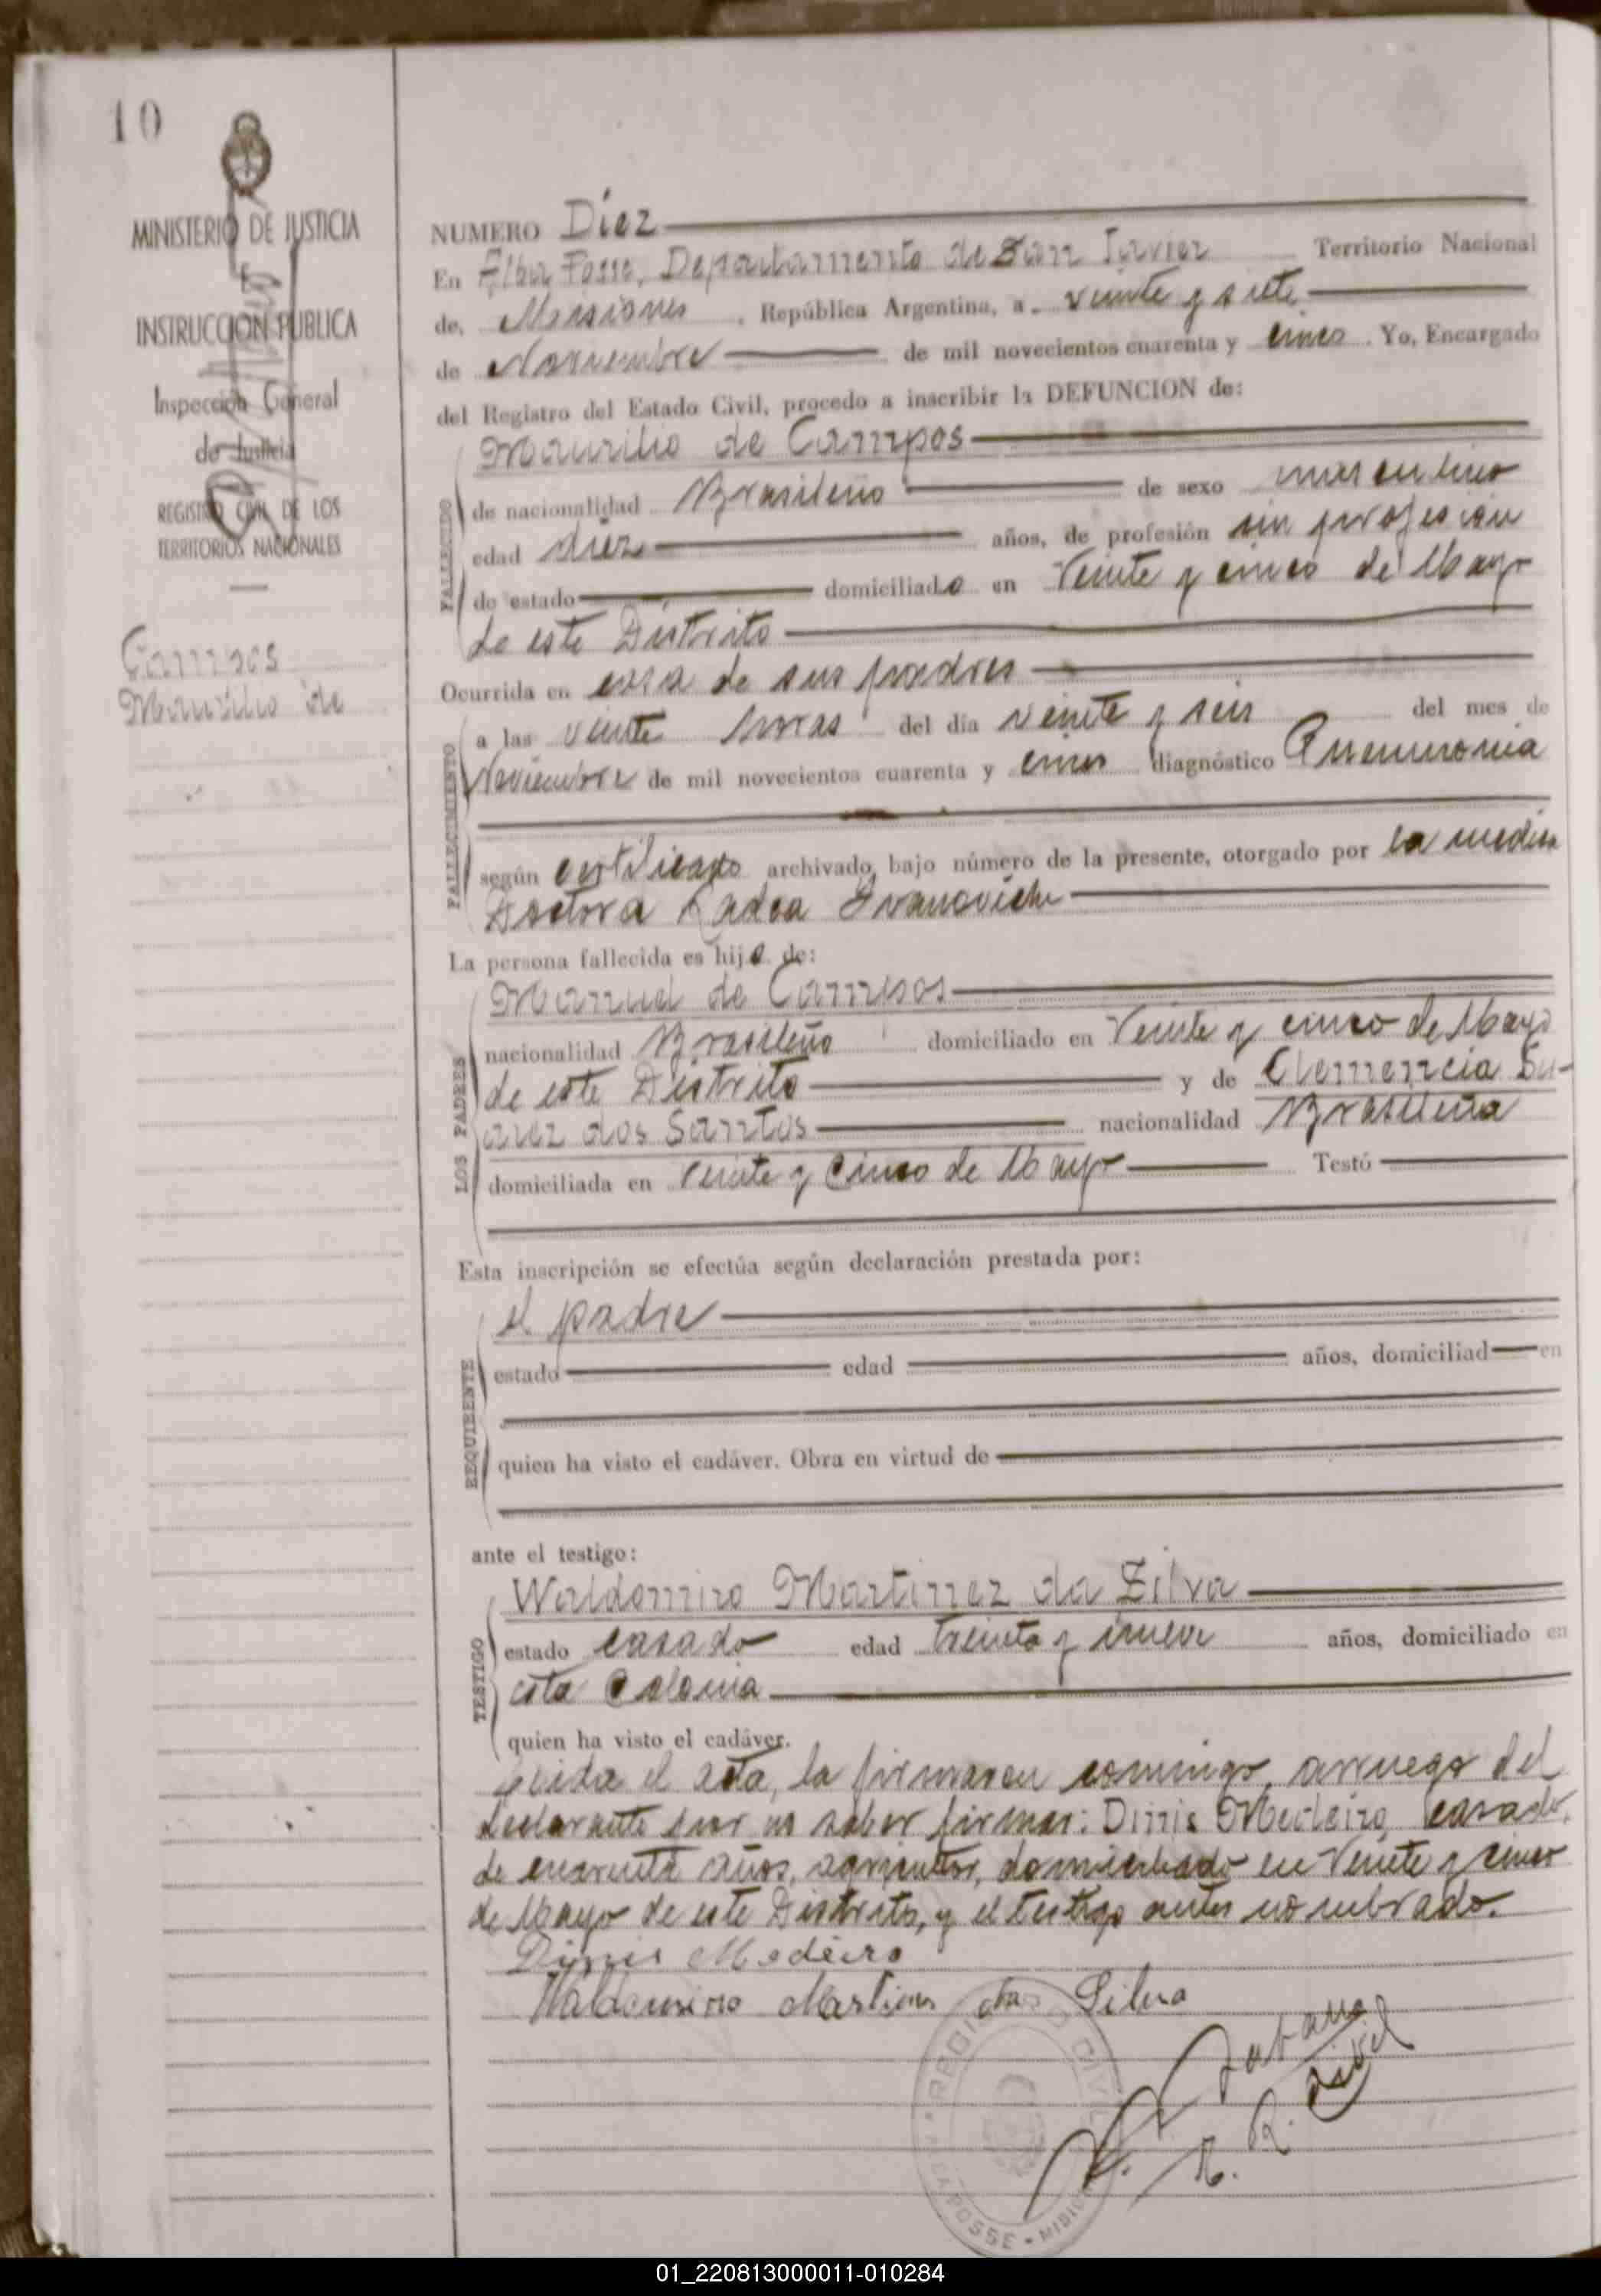 10
MINISTERIO DE JUSTICIA
E
INSTRUCCION PUBLICA
Inspección General
de Justicia
REGISTRO CIVIL DE LOS
TERRITORIOS NACIONALES
Campos
Maurilio de
NUMERO Diez
En Alba Posse, Departamento de San Javier Territorio Nacional
de, Misiones, República Argentina, a veinte y siete
de Noviembre de mil novecientos cuarenta y cinco. Yo, Encargado
del Registro del Estado Civil, procedo a inscribir la DEFUNCION de:
Maurilio de Campos
FALLECIDO
de nacionalidad Brasileño de sexo masculino
edad diez años, de profesión sin profesión
de estado domiciliado en Veinte y cinco de Mayo
de este Distrito
Ocurrida en casa de sus padres
FALLECIMIENTO
a las veinte horas del día veinte y seis del mes de
Noviembre de mil novecientos cuarenta y cinco diagnóstico Pneumonia
según certificado archivado, bajo número de la presente, otorgado por la medica
Doctora Ivanovich
La persona fallecida es hijo de:
LOS PADRES
Manuel de Campos
nacionalidad Brasileño domiciliado en Veinte y cinco de Mayo
de este Distrito y de Clemencia Su-
arez dos Santos nacionalidad Brasileña
domiciliada en Veinte y Cinco de Mayo Testó
Esta inscripción se efectúa según declaración prestada por:
REQUIRENTE
el padre
estado edad años, domiciliad en
quien ha visto el cadáver. Obra en virtud de
ante el testigo:
TESTIGO
Waldomiro Martinez da Silva
estado casado edad treinta y nueve años, domiciliado en
esta Colonia
quien ha visto el cadáver.
Leida el acta, la firmaron conmigo, arruego del
declarante por no saber firmar: Dinis Medeiro, casado,
de cuarenta años, agricultor, domiciliado en Veinte y cinco
de Mayo de este Distrito, y el testigo antes nombrado.
Dinis Medeiro
Waldomiro Martins da Silva
REGISTRO CIVIL
ALBA POSSE - MISIONES
01_220813000011-010284